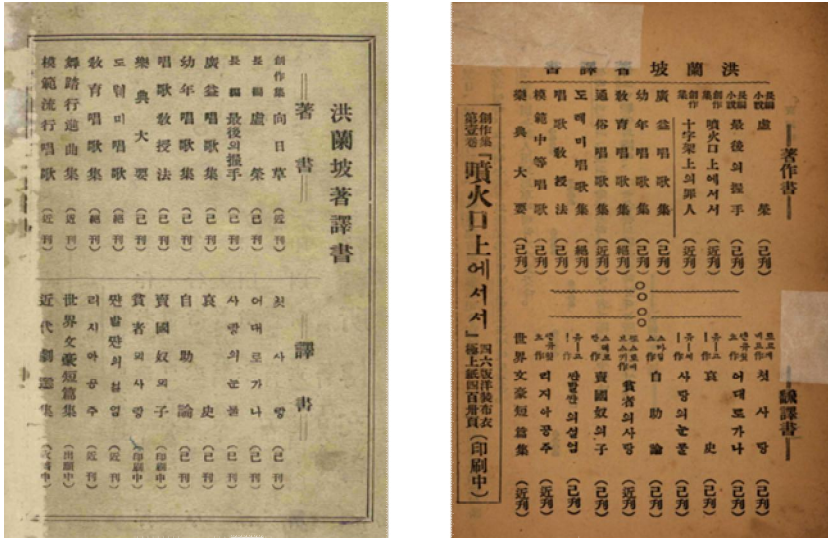 洪蘭坡著譯書
著書
創作集 向日草 (近刊)
長編 虛榮 (已刊)
長編 最後의握手 (已刊)
廣益唱歌集 (已刊)
幼年唱歌集 (已刊)
唱歌敎授法 (已刊)
樂典大要 (已刊)
도레미唱歌 (絕刊)
敎育唱歌集 (絕刊)
舞踏行進曲集 (近刊)
模範流行唱歌 (近刊)
譯書
첫사랑 (已刊)
어대로가나 (已刊)
사랑의눈물 (已刊)
哀史 (已刊)
自助論 (已刊)
賣國奴의子 (印刷中)
貧者의사랑 (印刷中)
짠발짠의설업 (近刊)
리시아공주 (近刊)
世界文豪短篇集 (出願中)
近代劇選集
洪蘭坡著譯書
著作書
長編小說 虛榮 (已刊)
長編小說 最後의握手 (已刊)
創作集 噴火口上에서서 (近刊)
創作集 十字架上의罪人 (近刊)
廣益唱歌集 (已刊)
幼年唱歌集 (已刊)
敎育唱歌集 (絕刊)
通俗唱歌集 (近刊)
도레미唱歌集 (絕刊)
唱歌敎授法 (已刊)
模範中等唱歌 (已刊)
樂典大要 (已刊)
飜譯書
첫사랑 (已刊)
어대로가나 (已刊)
哀史 (已刊)
사랑의눈물 (已刊)
自助論 (已刊)
貧者의사랑 (近刊)
賣國奴의子 (已刊)
짠발짠의설업 (已刊)
리지아공주 (近刊)
世界文豪短篇集 (近刊)
創作集第壹卷 『噴火口上에서서』 四六版洋裝布衣極上紙四百卅頁 (印刷中)